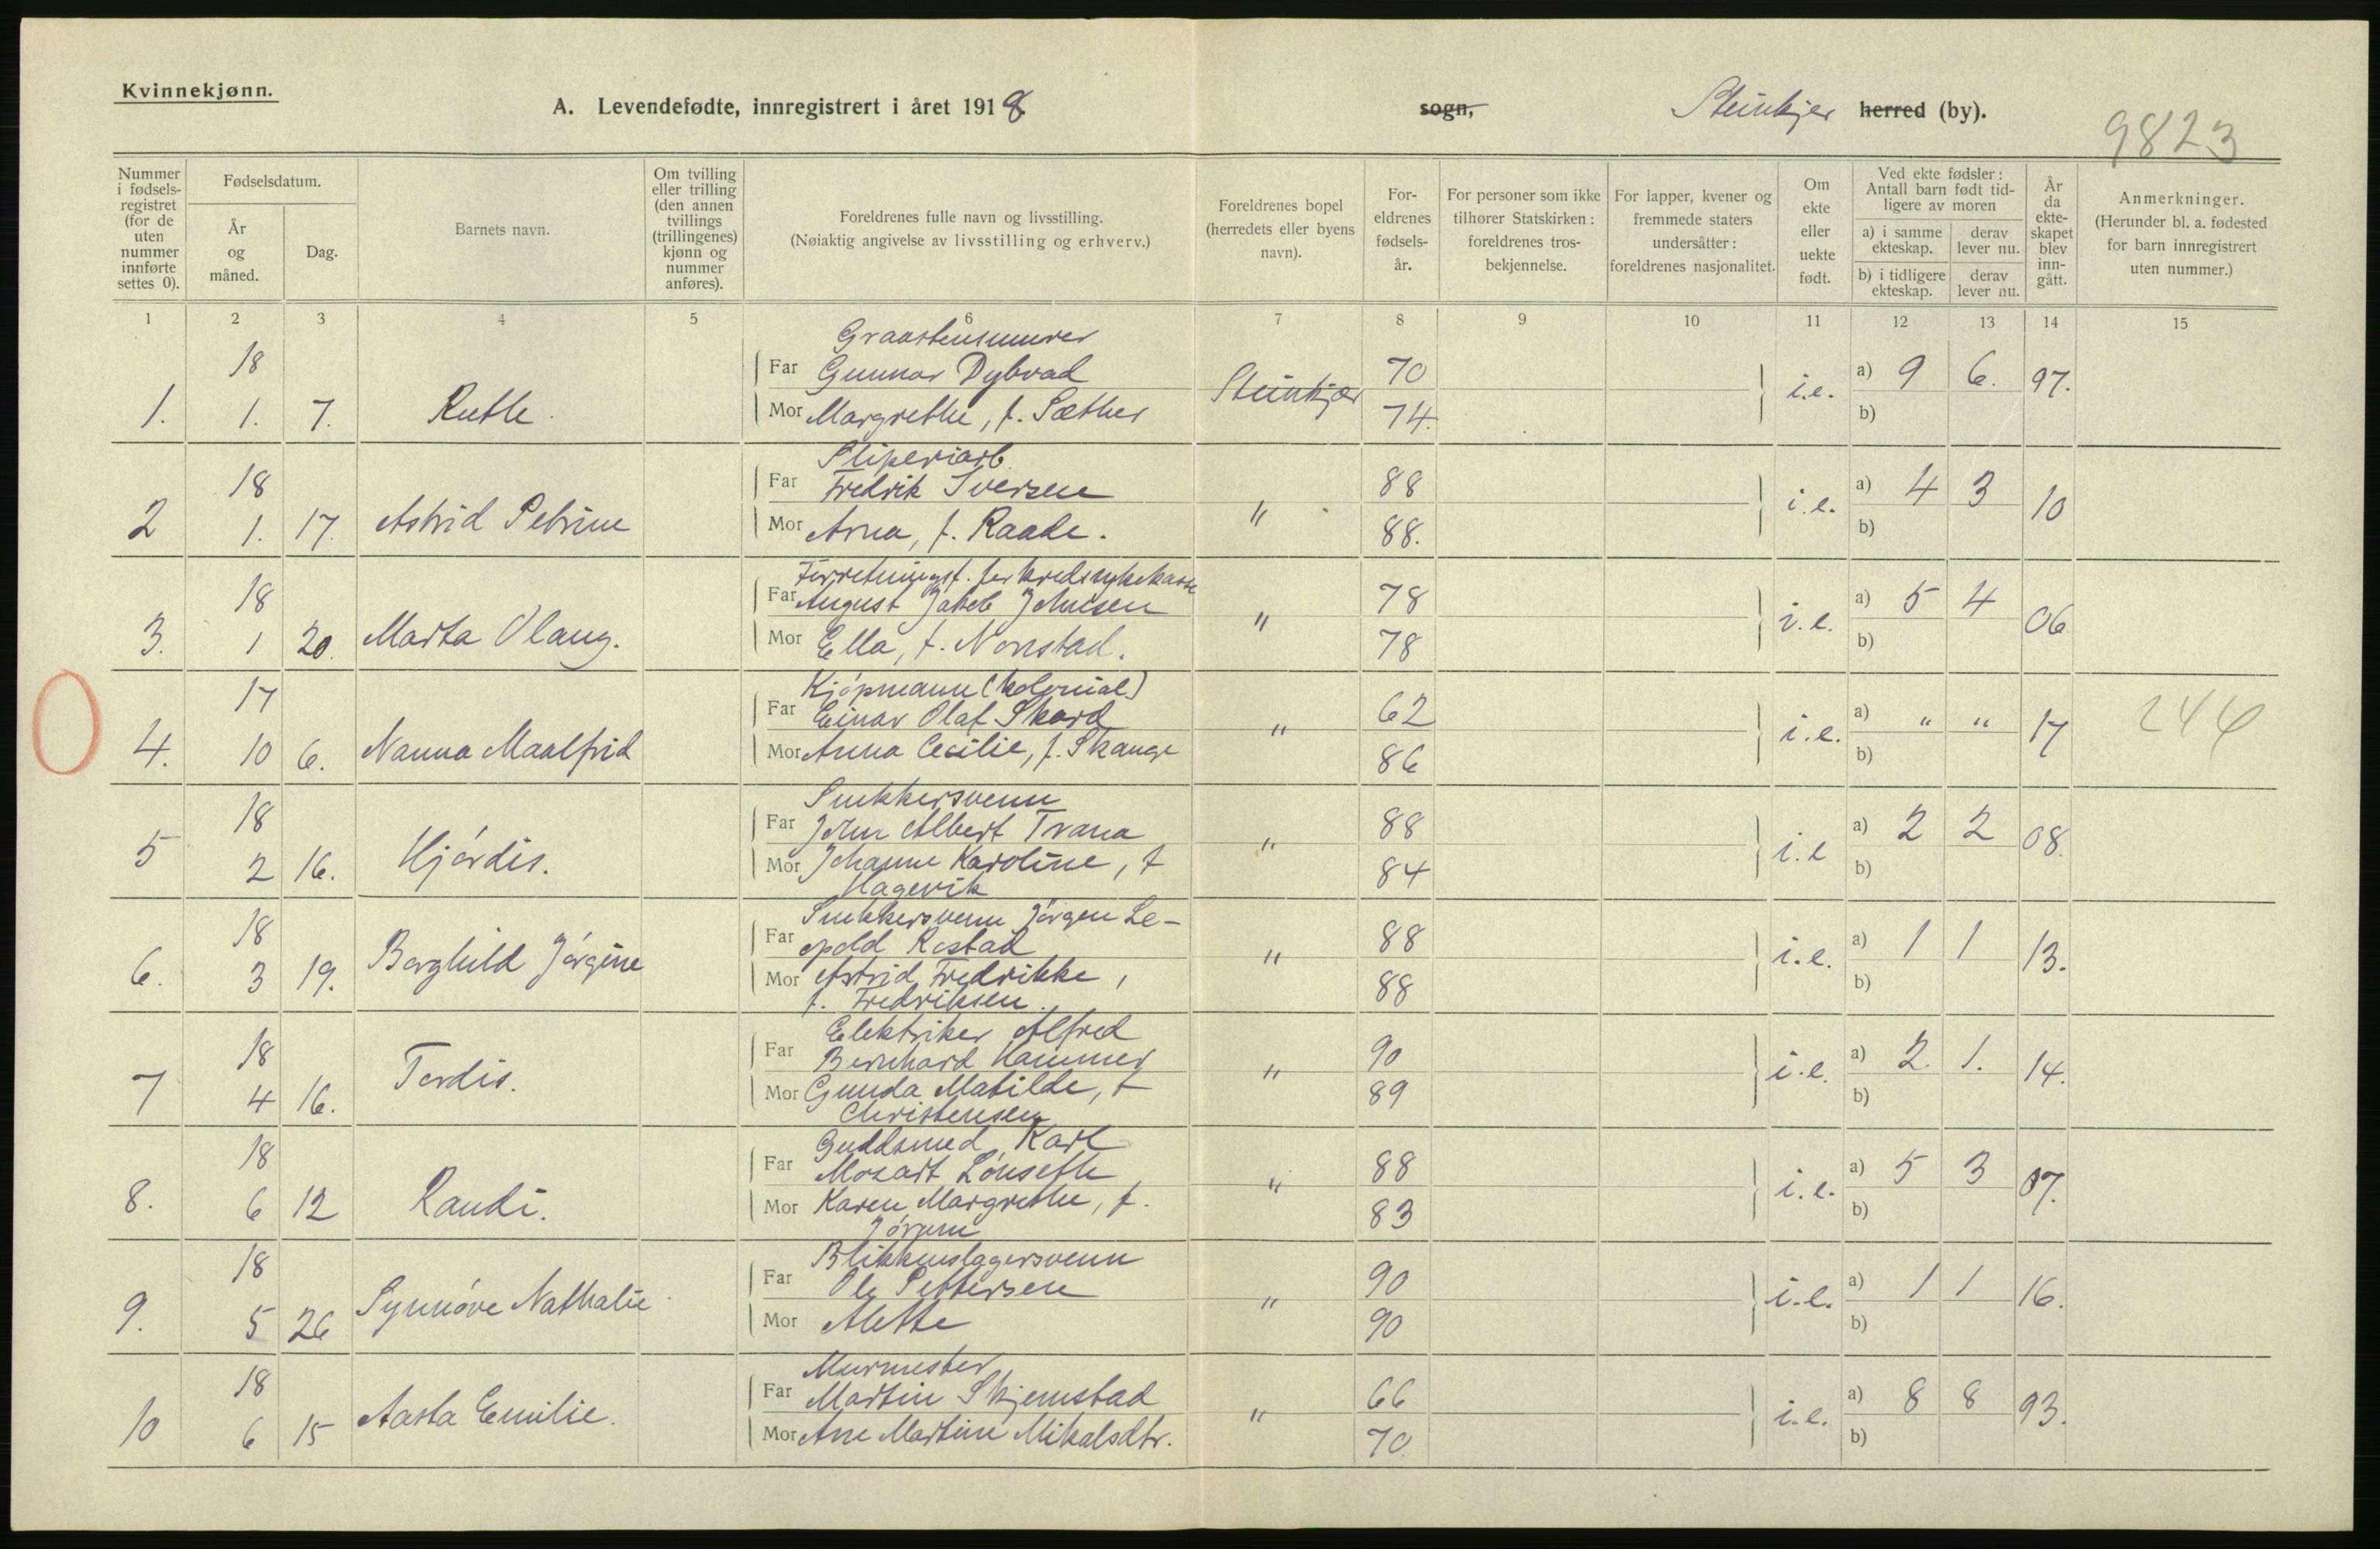 Kvinnekjønn.
A. Levendefødte, innregistrert i året 1918
sogn,
Steinkjer herred (by).
9823
Nummer i fødsels-registret (for de uten nummer innførte settes 0).
Fødselsdatum.
År og måned.
Dag.
Barnets navn.
Om tvilling eller trilling (den annen tvillings (trillingenes) kjønn og nummer anføres).
Foreldrenes fulle navn og livsstilling.
(Nøiaktig angivelse av livsstilling og erhverv.)
Foreldrenes bopel (herredets eller byens navn).
For-eldrenes fødsels-år.
For personer som ikke tilhører Statskirken: foreldrenes tros-bekjennelse.
For lapper, kvener og fremmede staters undersåtter: foreldrenes nasjonalitet.
Om ekte eller uekte født.
Ved ekte fødsler: Antall barn født tid-ligere av moren
a) i samme ekteskap.
derav lever nu.
b) i tidligere ekteskap.
derav lever nu.
År da ekte-skapet blev inn-gått.
Anmerkninger.
(Herunder bl. a. fødested for barn innregistrert uten nummer.)
1 2 3 4 5 6 7 8 9 10 11 12 13 14 15
Graastensmurer
18 Far Gunnar Dybvad 70 a) 9 6. 97.
1. 1. 7. Ruth. Mor Margrethe, f. Sæther Steinkjer 74. i.e. b)
Sliperiarb.
18 Far Fredrik Iversen 88 a) 4 3 10
2 1. 17. Astrid Petrine Mor Arna, f. Raade. " 88. i.e. b)
Forretningsf. for kredssykekasse
18 Far August Jakob Johnsen 78 a) 5 4 06
3. 1 20. Marta Olaug. Mor Ella, f. Norstad. " 78 i.e. b)
Kjøpmann (kolonial)
17 Far Einar Olaf Skard 62 a) " " 17 244
4. 10 6. Nanna Maalfrid Mor Anna Cecilie, f. Skauge " 86 i.e. b)
Snekkersvenn
18 Far John Albert Trana 88 a) 2 2 08.
5 2 16. Hjørdis. Mor Johanne Karoline, f " 84 i.e b)
Hagevik
Snekkersvenn Jørgen Le-
18 Far opold Rostad 88 a) 1 1 13.
6. 3 19. Borghild Jørgine Mor Astrid Fredrikke, " 88 i.e. b)
f. Fredriksen.
Elektriker Alfred
18 Far Bernhard Hammer 90 a) 2 1. 14.
7 4 16. Tordis. Mor Gunda Matilde, f " 89 i.e. b)
Christensen
Guldsmed Karl
18 Far Mozart Lønseth 88 a) 5 3 07.
8. 6 12 Randi. Mor Karen Margrethe, f. " 83 i.e. b)
Jørum
Blikkenslagersvenn
18 Far Ole Pettersen 90 a) 1 1 16.
9. 5 26 Synnøve Nathalie Mor Alette " 90 i.e. b)
Murmester
18 Far Martin Skjemstad 66 a) 8 8 93.
10 6 15 Aasta Emilie. Mor Ane Martine Mikalsdtr. " 70. i.e. b)